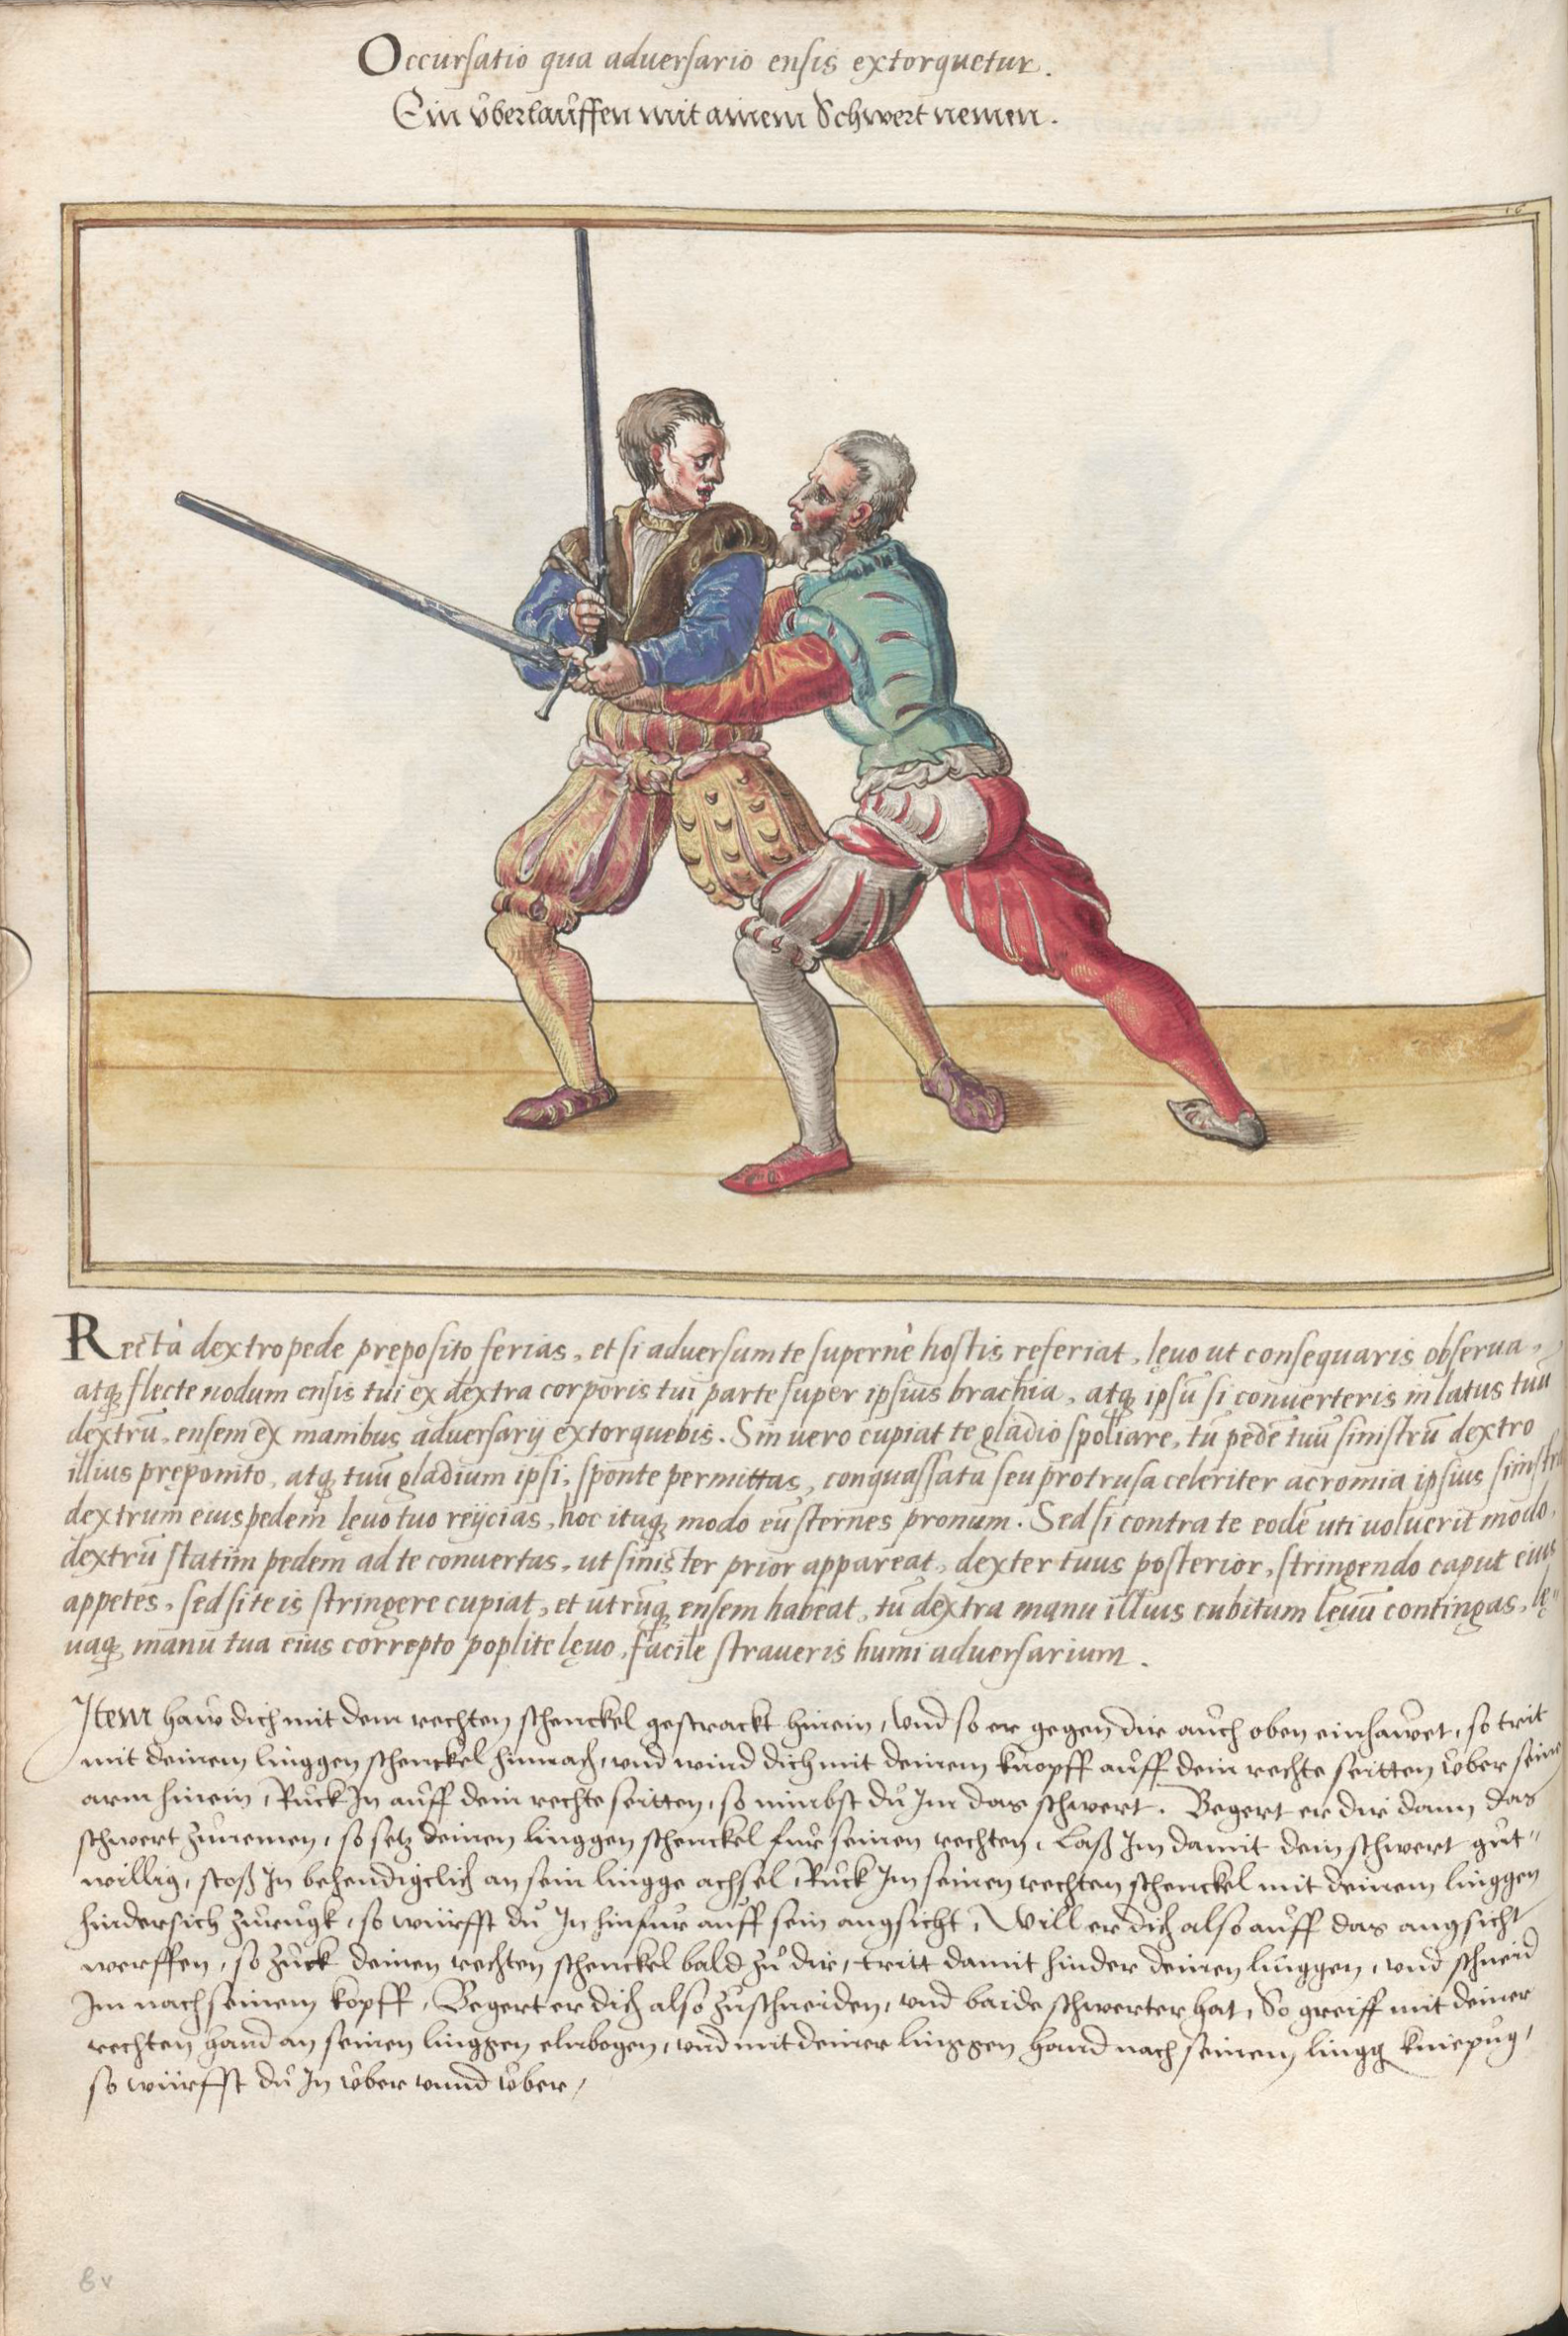 Occursatio qua aduersario ensis extorquetur.
Ein v̊berlau̇ffen mit ainem Schwert nemen.
16
Recta dextro pede pręposito ferias, et si aduersum te supernè hostis referiat, lęuo ut consequaris obserua,
atq; flecte nodum ensis tui ex dextra corporis tui parte super ipsius brachia, atq; ipsū si conuerteris in latus tuū
dextrū, ensem ex manibus aduersarij extorquebis. Sin uero cupiat te gladio spoliare, tū pedē tuū sinistrū dextro
illius pręponito, atq; tuū gladium ipsi, sponte permittas, conquassata seu protrusa celeriter acromia ipsius sinistra
dextrum eius pedem lęuo tuo reijcias, hoc itaq; modo eū sternes pronum. Sed si contra te eodē uti uoluerit modo,
dextrū statim pedem ad te conuertas, ut sinister prior appareat, dexter tuus posterior, stringendo caput eius
appetes, sed si te is stringere cupiat, et utrūq; ensem habeat, tū dextra manu illius cubitum lęuū contingas, lę-
uaq; manu tua eius correpto poplite lęuo, facile straueris humi aduersarium.
Item haw dich mit dem rechten schenckel gestrackt hinein, vnd so er gegen dir auch oben einhawet, so trit
mit deinem linggen schenckel hinnach, vnd wind dich mit deinem knopff auff dein rechte seitten vber seine
arm hinein, Ruck In auff dein rechte seitten, so nimbst du Im das schwert. Begert er dir dann das
schwert zunemen, so setz deinen linggen schenckel fur seinen rechten, Laß Im damit dein schwert gut-
willig, stoß In behendigclich an sein lingge achsel, Ruck Im seinen rechten schenckel mit deinem linggen
hindersich zurugk, so würffst du In hinfur auff sein angsicht, Will er dich also auff das angsicht
werffen, so zuck deinen rechten schenckel bald zu dir, tritt damit hinder deinen linggen, vnd schneid
Im nach seinem kopff, Begert er dich also zuschneiden, vnd baide schwerter hat, So greiff mit deiner
rechten hand an seinen linggen elnbogen, vnd mit deiner linggen hand nach seinem lingg kniepug,
so würffst du In vber vnnd vber,
8v